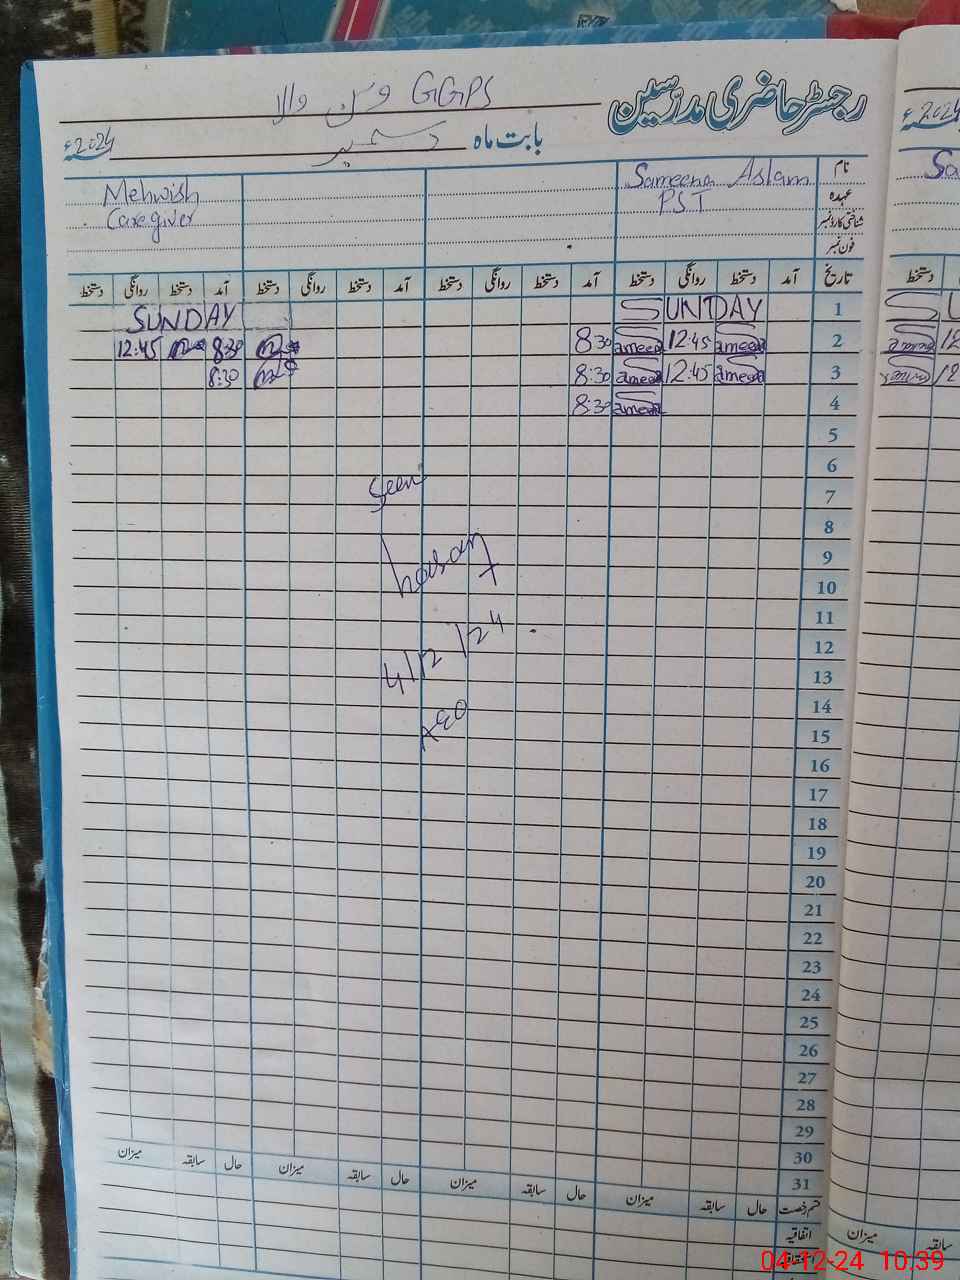 رجسٹر حاضری مدرّسین
GGPS وکن والا
بابت ماہ دسمبر 2024ء
نام Sameena Aslam Mehwish
عہدہ PST Caregiver
شناختی کارڈ نمبر
فون نمبر
تاریخ آمد دستخط روانگی دستخط آمد دستخط روانگی دستخط آمد دستخط روانگی دستخط آمد دستخط روانگی دستخط
1 SUNDAY SUNDAY
2 8:30 Sameena 12:45 Sameena 8:30 12:45
3 8:30 Sameena 12:45 Sameena 8:30
4 8:30 Sameena
5
6
7
Seen
8
9
hasan
10
11
12
4/12/24
13
14
AEO
15
16
17
18
19
20
21
22
23
24
25
26
27
28
29
30
31
حال سابقہ میزان حال سابقہ میزان حال سابقہ میزان حال سابقہ میزان
قسم رخصت
اتفاقیہ
استحقاقیہ
2024ء
Sa
دستخط
S U
12
12
میزان سابقہ
04-12-24 10:39